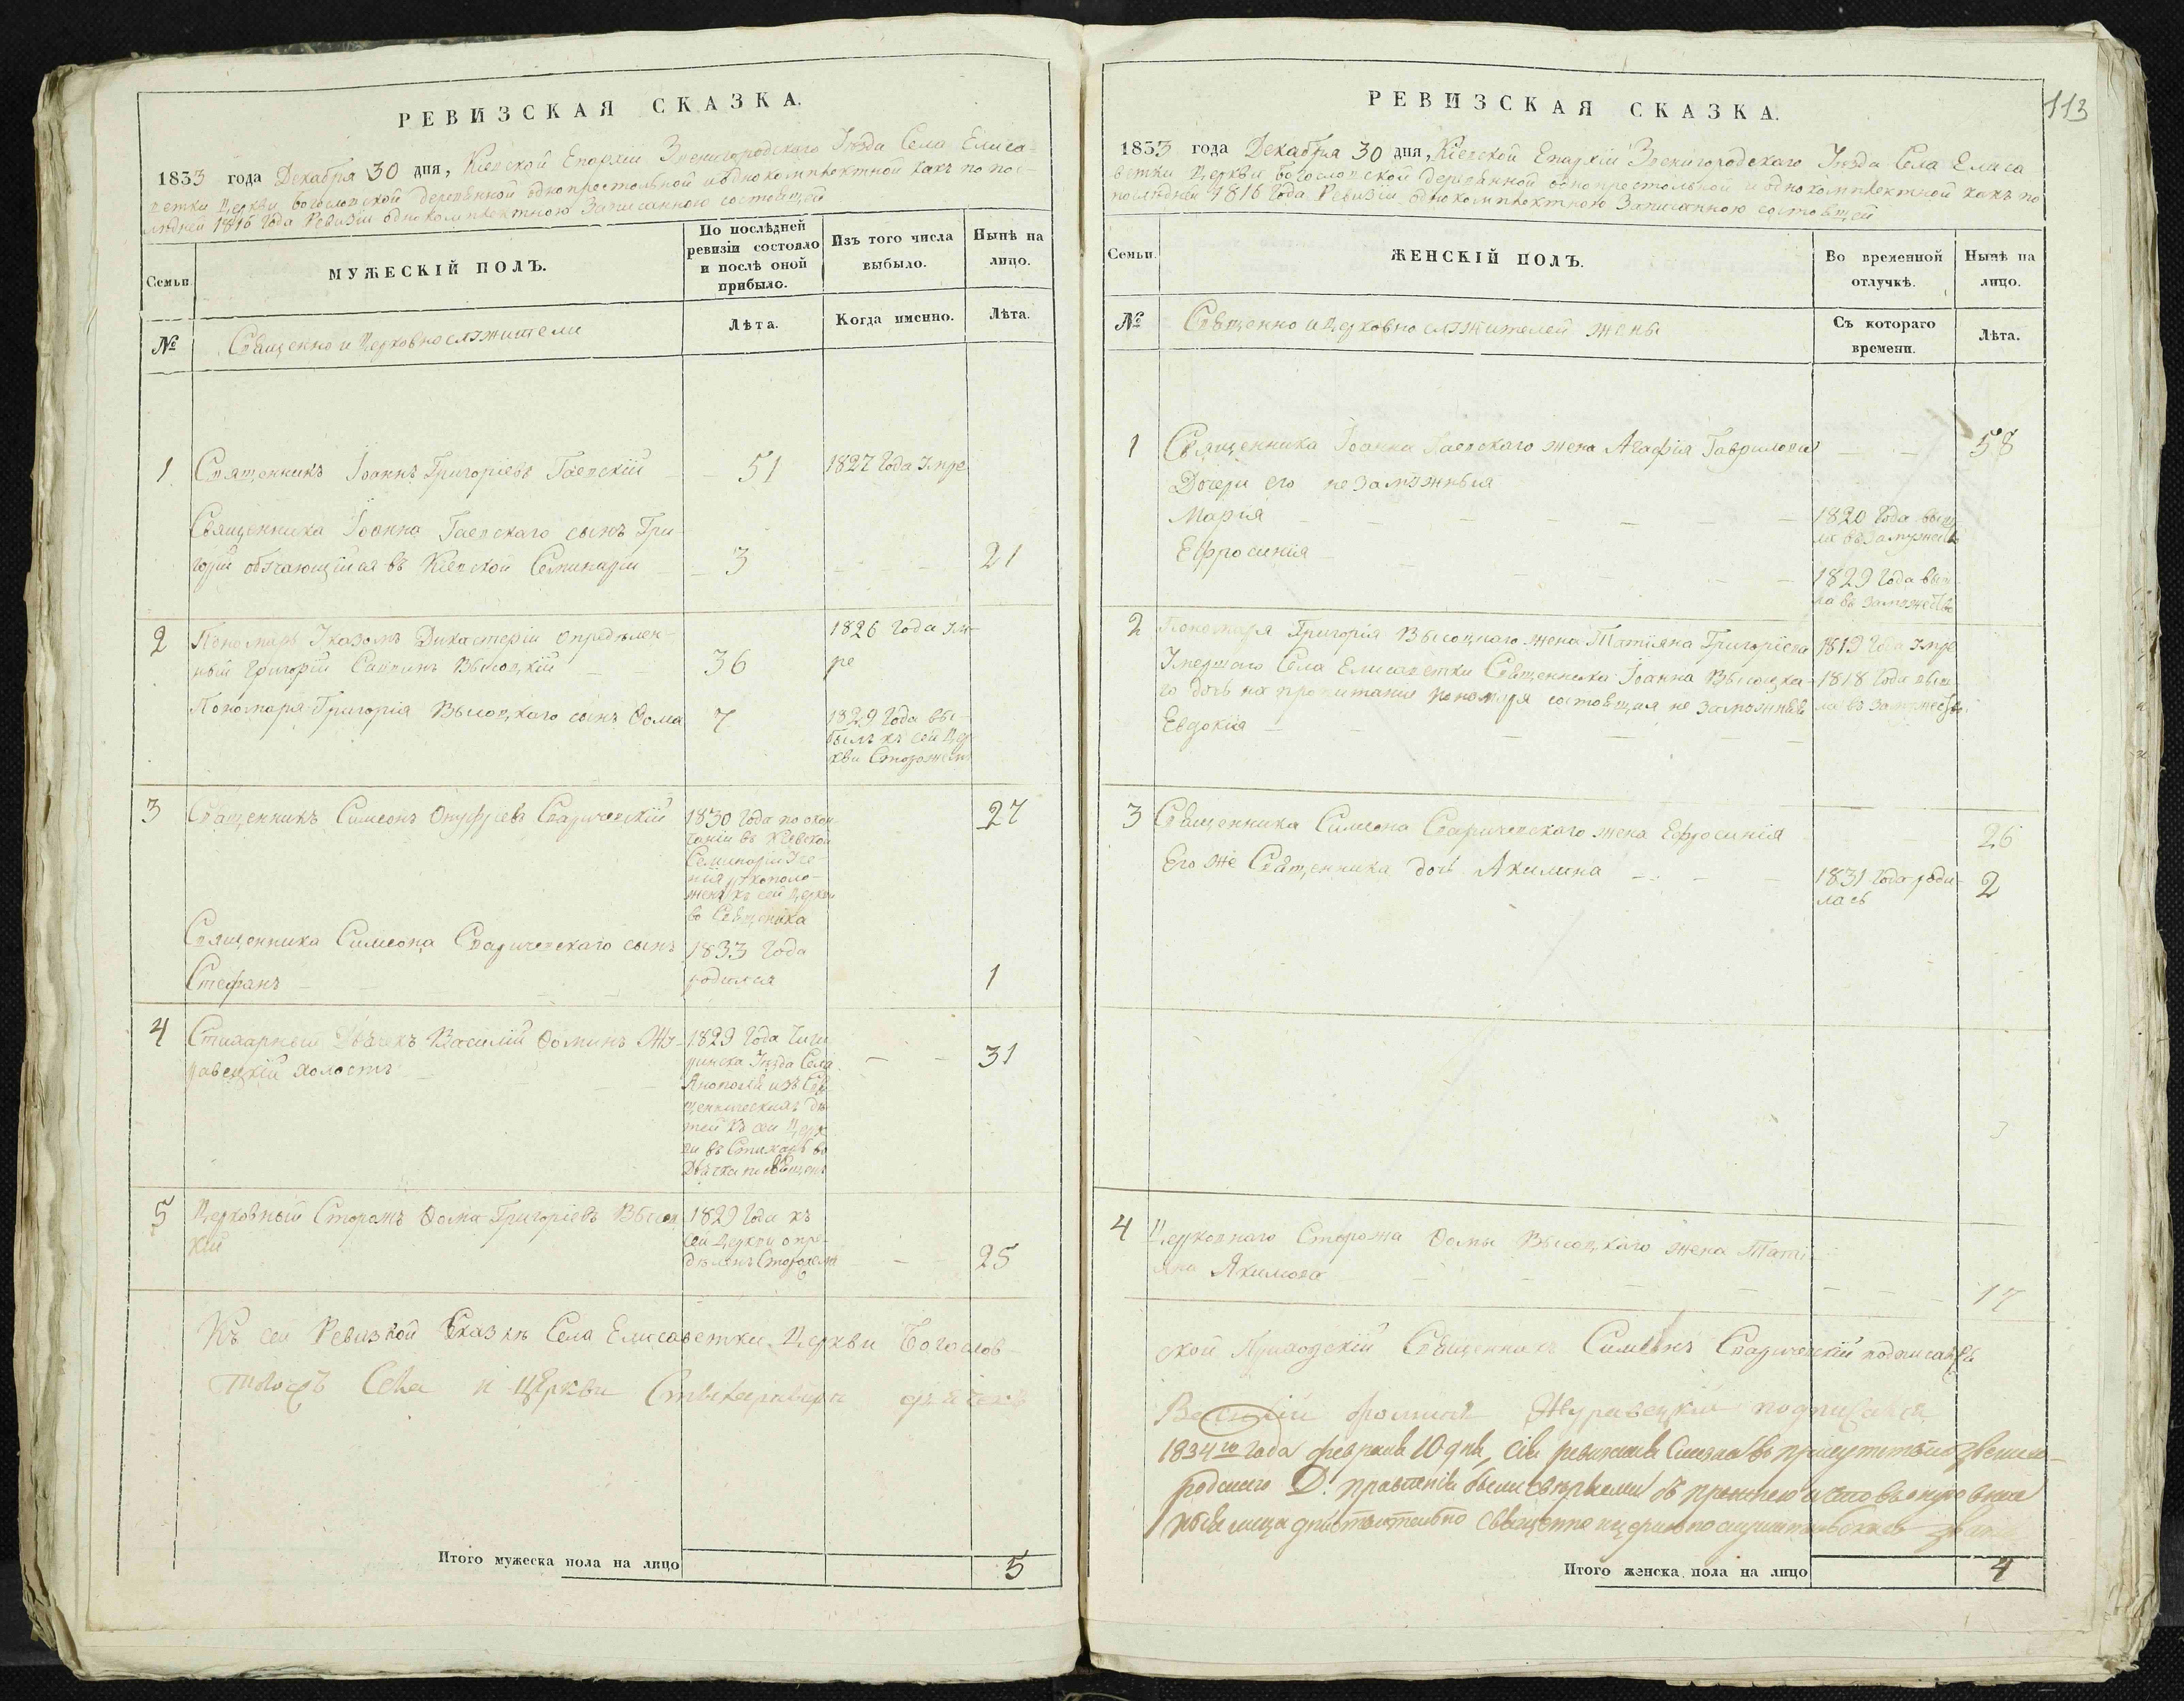 РЕВИЗСКАЯ СКАЗКА.
1833 года Декабря 30 дня, Кіевской Епархіи Звенигородскаго Уѣзда Села Елиса-
ветки Церкви богословской деревянной однопрестольной и однокомплектной какъ по пос-
лѣдней 1816 года Ревизіи однокомплектною Записанною состоящей
Семьи.
МУЖЕСКІЙ ПОЛЪ.
По послѣдней ревизіи состояло и послѣ оной прибыло.
Изъ того числа выбыло.
Нынѣ на лицо.
№
Священно и Церковнослужители
Лѣта.
Когда именно.
Лѣта.
1 Священникъ Іоаннъ Григоріевъ Гаевскій 51 1827 года Умре
Священника Іоанна Гаевскаго сынъ Гри-
горій обучающійся въ Кіевской Семинаріи 3 21
2 Пономарь Указомъ Дикастеріи опредѣлен-
ный Григорій Саввинъ Высоцкій 36
1826 года Ум-
ре
Пономаря Григорія Высоцкаго сынъ Ѳома 7
1829 года вы-
былъ къ сей Цер
кви Сторожемъ
3 Священникъ Симеонъ Онуфріевъ Спаричевскій 27
1830 года по окон
чаніи въ Кіевской
Семинаріи Уче-
нія рукополо-
женъ къ сей Церкви
во Священника
Священника Симеона Спаричевскаго сынъ
Стефанъ 1
1833 года
родился
4 Стихарный Дьячекъ Василій Ѳоминъ Жу-
равецкій холостъ 31
1829 года Чиги
ринска Уѣзда Села
изъ Свя
щенническихъ дѣ
тей къ сей Церк
ви въ Стихарь во
Дьячка посвященъ
5 Церковный Сторожъ Ѳома Григоріевъ Высоц
кій 25
1829 года къ
сей Церкви опре-
дѣленъ Сторожемъ
Къ сей Ревизкой Сказкѣ Села Елисаветки Церкви Богослов-
тогожъ Села и Церкви Стихарный дьячекъ
Итого мужеска пола на лицо 5
113
РЕВИЗСКАЯ СКАЗКА.
1833 года Декабря 30 дня, Кіевской Епархіи Звенигородскаго Уѣзда Села Елиса
ветки Церкви богословской деревянной однопрестольной и однокомплектной какъ по
послѣдней 1816 года Ревизіи однокомплектною Записанною состоящей
Семьи.
ЖЕНСКІЙ ПОЛЪ.
Во временной отлучкѣ.
Нынѣ на лицо.
№
Священно и Церковно служителей жены
Съ котораго времени.
Лѣта.
1 Священника Іоанна Гаевскаго жена Агафія Гаврилова 58
Дочери его незамужныя
Марія
1820 года выш
ла въ замужество
Ефросинія
1829 года выш-
ла въ замужество
2 Пономаря Григорія Высоцкаго жена Татіяна Григоріева 1819 года Умре
Умершаго Села Елисаветки Священника Іоанна Высоцка-
го дочь на пропитаніи пономаря состоящая не замужняя
Евдокія
1818 года выш-
ла въ замужество
3 Священника Симеона Спаричевскаго жена Ефросинія 26
Его же Священника дочь Акилина 2
1831 года роди-
лась
3
4 Церковнаго Сторожа Ѳомы Высоцкаго жена Тати-
яна Якимова 17
ской Приходскій Священникъ Симеонъ Спаричевскій подписалсь
Василій Фоминъ Журавецкій подписался
1834го года февраля 10 дня, сія ревизская Сказка въ присутствіи Звениго-
родскаго Д. правленія были свѣряемы съ прежнею и что въ оную внесен
ныя лица дѣйствительно священно и церковно служительскаго званія
Итого женска пола на лицо 4